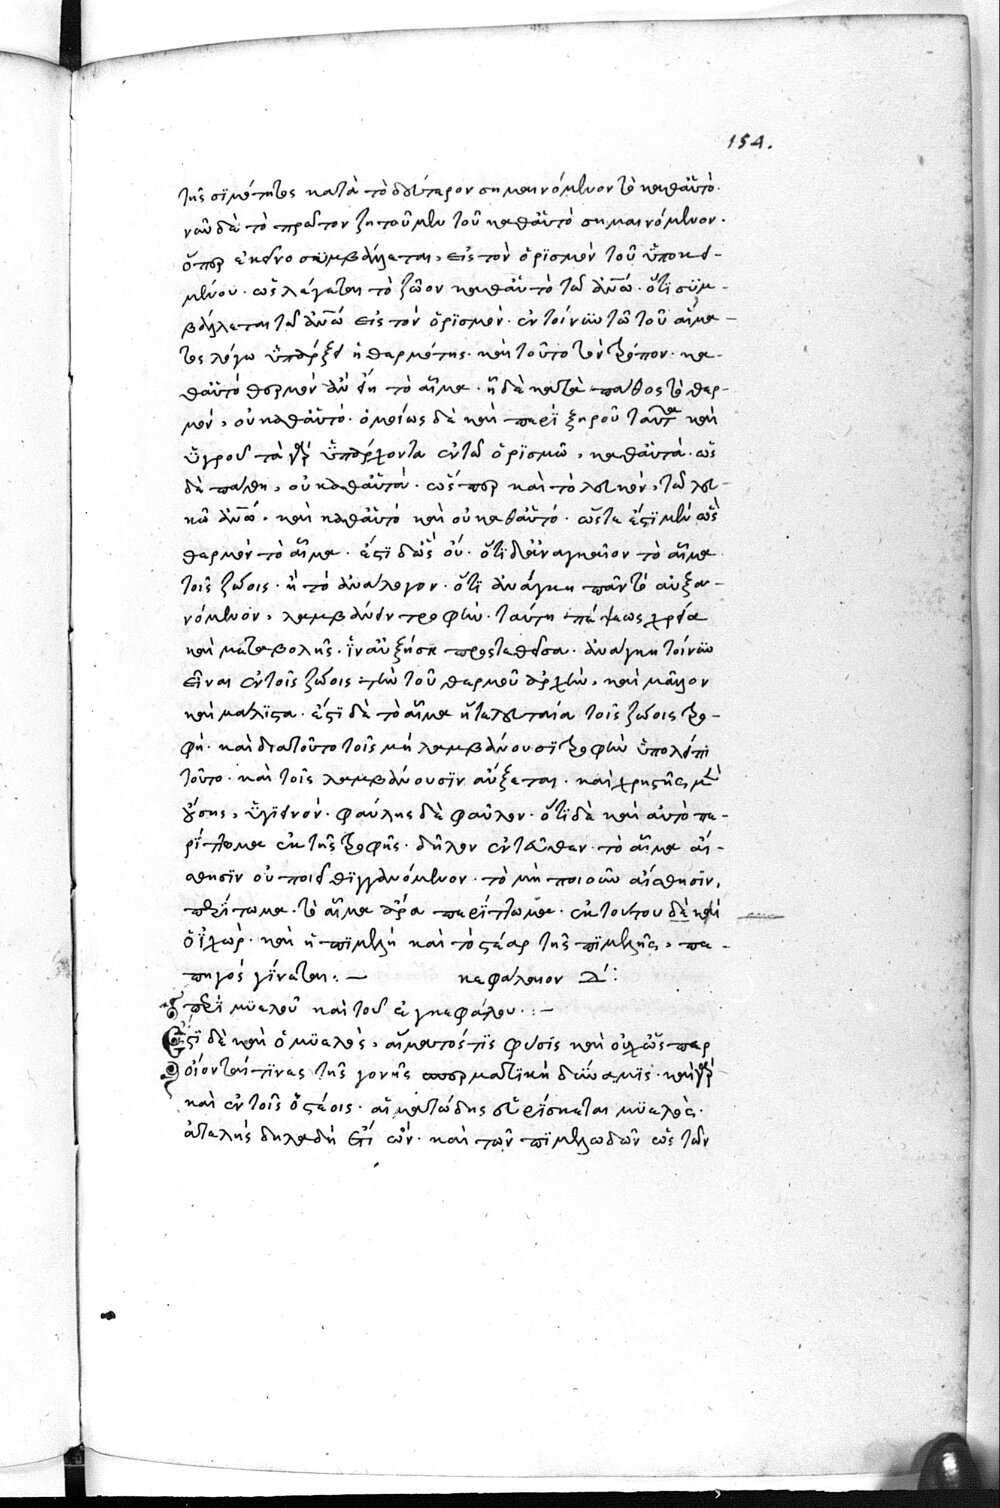 154.
τῆς σιμότητος κατὰ τὸ δεύτερον σημαινόμενον τὸ καθαὑτό.
νῦν δὲ τὸ πρῶτον ζητοῦμεν τοῦ καθαὑτὸ σημαινόμενον.
ὅπερ ἐκεῖνο συμβάλλεται, εἰς τὸν ὁρισμὸν τοῦ ὑποκει-
μένου. ὡς λέγεται τὸ ζῶον καθαὑτὸ τῶ ἀνῶ. ὅτι συμ-
βάλλεται τῶ ἀνῶ εἰς τὸν ὁρισμόν. ἐν τοίνυν τῶ τοῦ αἵμα-
τος λόγω ὑπάρξει ἡ θερμότης. καὶ τοῦτο τὸν τρόπον. κα-
θαὑτὸ θερμὸν ἂν εἴη τὸ αἷμα. ἢ δὲ κατὰ πάθος τὸ θερ-
μόν, οὐ καθαὑτό. ὁμοίως δὲ καὶ περὶ ξηροῦ ταῦτα καὶ
ὑγροῦ τὰ γὰρ ὑπάρχοντα ἐν τῶ ὁρισμῶ, καθαὑτά. ὡς
δὲ πάθη, οὐ καθαὑτά. ὥσπερ καὶ τὸ λευκόν, τῶ λευ-
κῶ ἀνῶ. καὶ καθαὑτὸ καὶ οὐ καθαὑτό. ὥστε ἔστι μὲν ὡς
θερμὸν τὸ αἷμα. ἔστι δ' ὡς οὔ. ὅτι δ' ἀναγκαῖον τὸ αἷμα
τοῖς ζώοις. ἢ τὸ ἀνάλογον. ὅτι ἀνάγκη πᾶν τὸ αὐξα-
νόμενον, λαμβάνειν τροφήν. ταύτη πέψεως χρεία
καὶ μεταβολῆς. ἵν' αὐξήση προστεθεῖσα. ἀνάγκη τοίνυν
εἶναι ἐν τοῖς ζώοις τὴν τοῦ θερμοῦ ἀρχήν, καὶ μᾶλλον
καὶ μάλιστα. ἔστι δὲ τὸ αἷμα ἡ τελευταία τοῖς ζώοις τρο-
φή. καὶ διατοῦτο τοῖς μὴ λαμβάνουσι τροφὴν ὑπολείπει
τοῦτο. καὶ τοῖς λαμβάνουσιν αὔξεται. καὶ χρηστῆς μὲν
οὔσης, ὑγιεινόν. φαύλης δὲ φαῦλον. ὅτι δὲ καὶ αὐτὸ πε-
ρίττωμα ἐκ τῆς τροφῆς. δῆλον ἐντεῦθεν. τὸ αἷμα αἴ-
σθησιν οὐ ποιεῖ θιγγανόμενον. τὸ μὴ ποιοῦν αἴσθησιν,
περίττωμα. τὸ αἷμα ἄρα περίττωμα. ἐκ τούτου δὲ καὶ
ὁ ἰχώρ. καὶ ἡ πιμελὴ καὶ τὸ στέαρ τῆς πιμελῆς, πε-
πηγὸς γίνεται. – κεφάλαιον Δ΄:
περὶ μυελοῦ καὶ τοῦ ἐγκεφάλου. : –
Ἔστι δὲ καὶ ὁ μυελός, αἵματός τις φύσις καὶ οὐχ ὥσπερ
οἴονταί τινες τῆς γονῆς σπερματικὴ δύναμις. καὶ γὰρ
καὶ ἐν τοῖς ὀστέοις. αἱματώδης εὑρίσκεται μυελός.
ἀτελὴς δηλαδὴ ἔτι ὤν. καὶ τῶν πιμελωδῶν ὡς τῶν